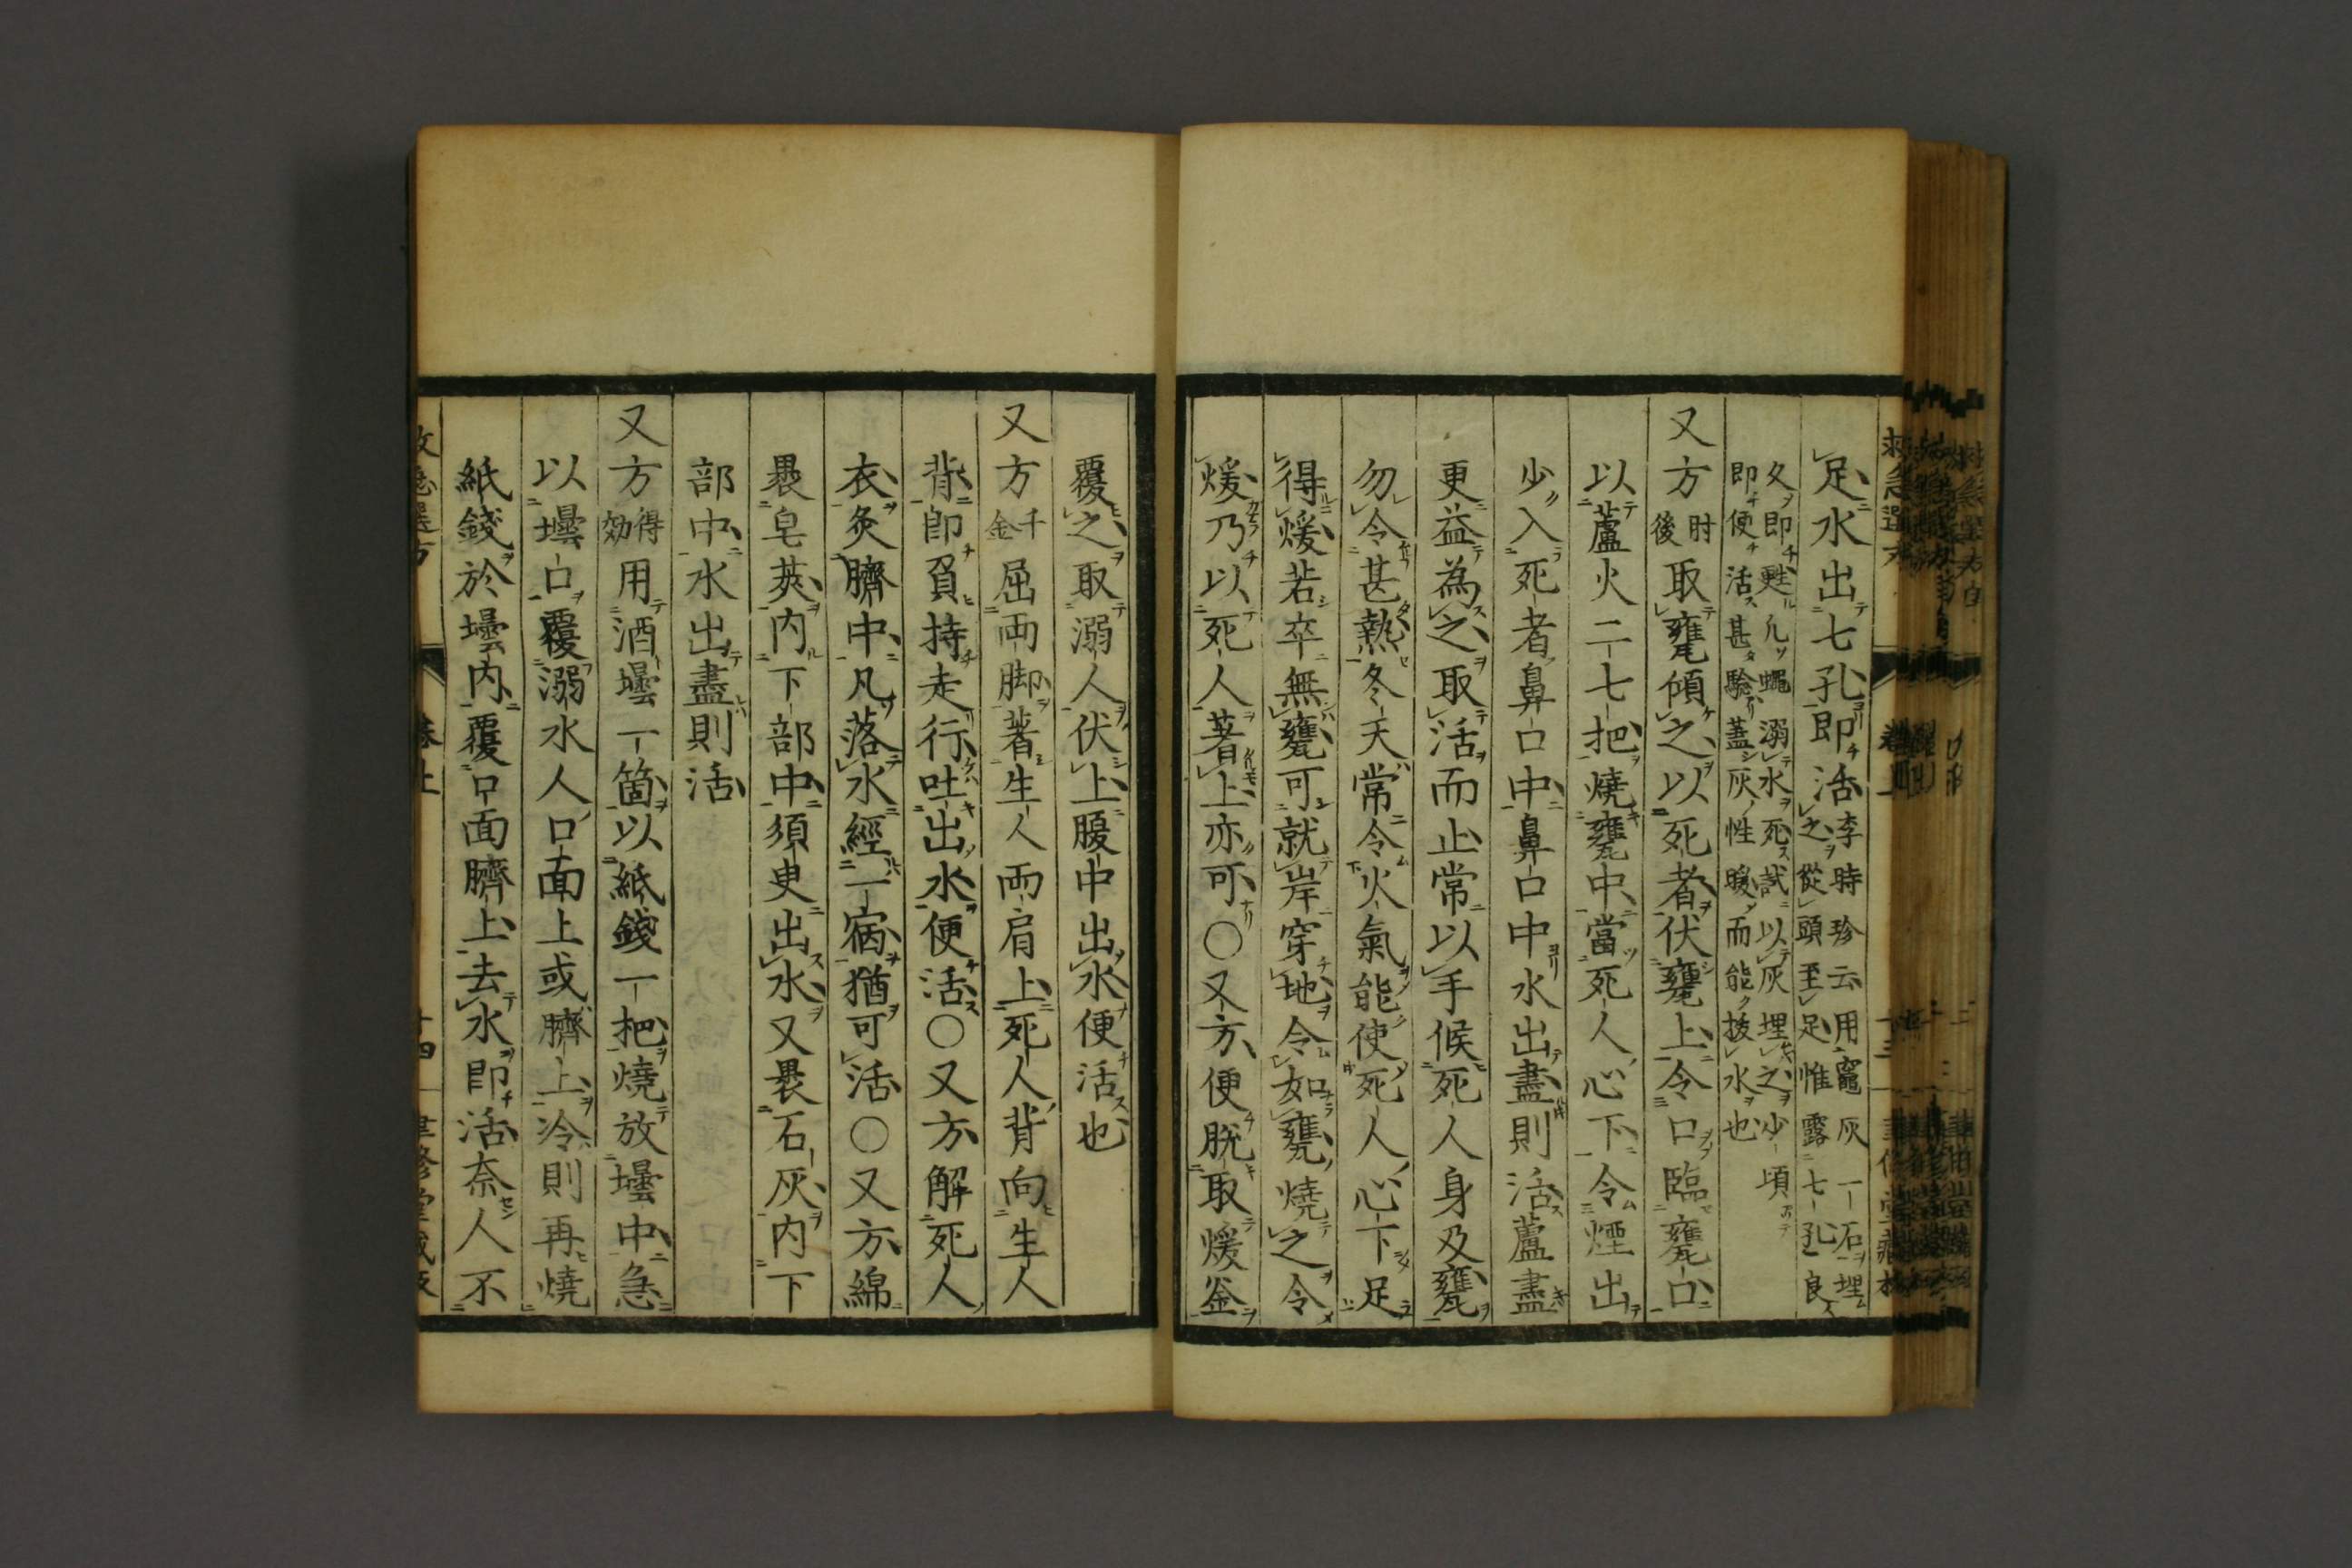 足水出七孔即活李時珍云用竈灰一石埋
之從頭至足惟露七孔良
久即甦凡蠅溺水死試以灰埋之少頃
即便活甚驗蓋灰性暖而能拔水也
又方肘後取甕傾之以死者伏甕上令口臨甕口
以蘆火二七把燒甕中當死人心下令煙出
少入死者鼻口中鼻口中水出盡則活蘆盡
更益為之取活而止常以手候死人身及甕
勿令甚熱冬天常令火氣能使死人心下足
得煖若卒無甕可就岸穿地令如甕燒之令
煖乃以死人著上亦可〇又方便脫取煖釜
覆之取溺人伏上腹中出水便活也
又方千金屈兩脚著生人兩肩上死人背向生人
背即負持走行吐出水便活〇又方解死人
衣灸臍中凡落水經一宿猶可活〇又方綿
裹皂莢內下部中須臾出水又裹石灰內下
部中水出盡則活
又方得効用酒壜一箇以紙錢一把燒放壜中急
以壜口覆溺水人口面上或臍上冷則再燒
紙錢於壜內覆口面臍上去水即活奈人不
救急選方 卷上 十四